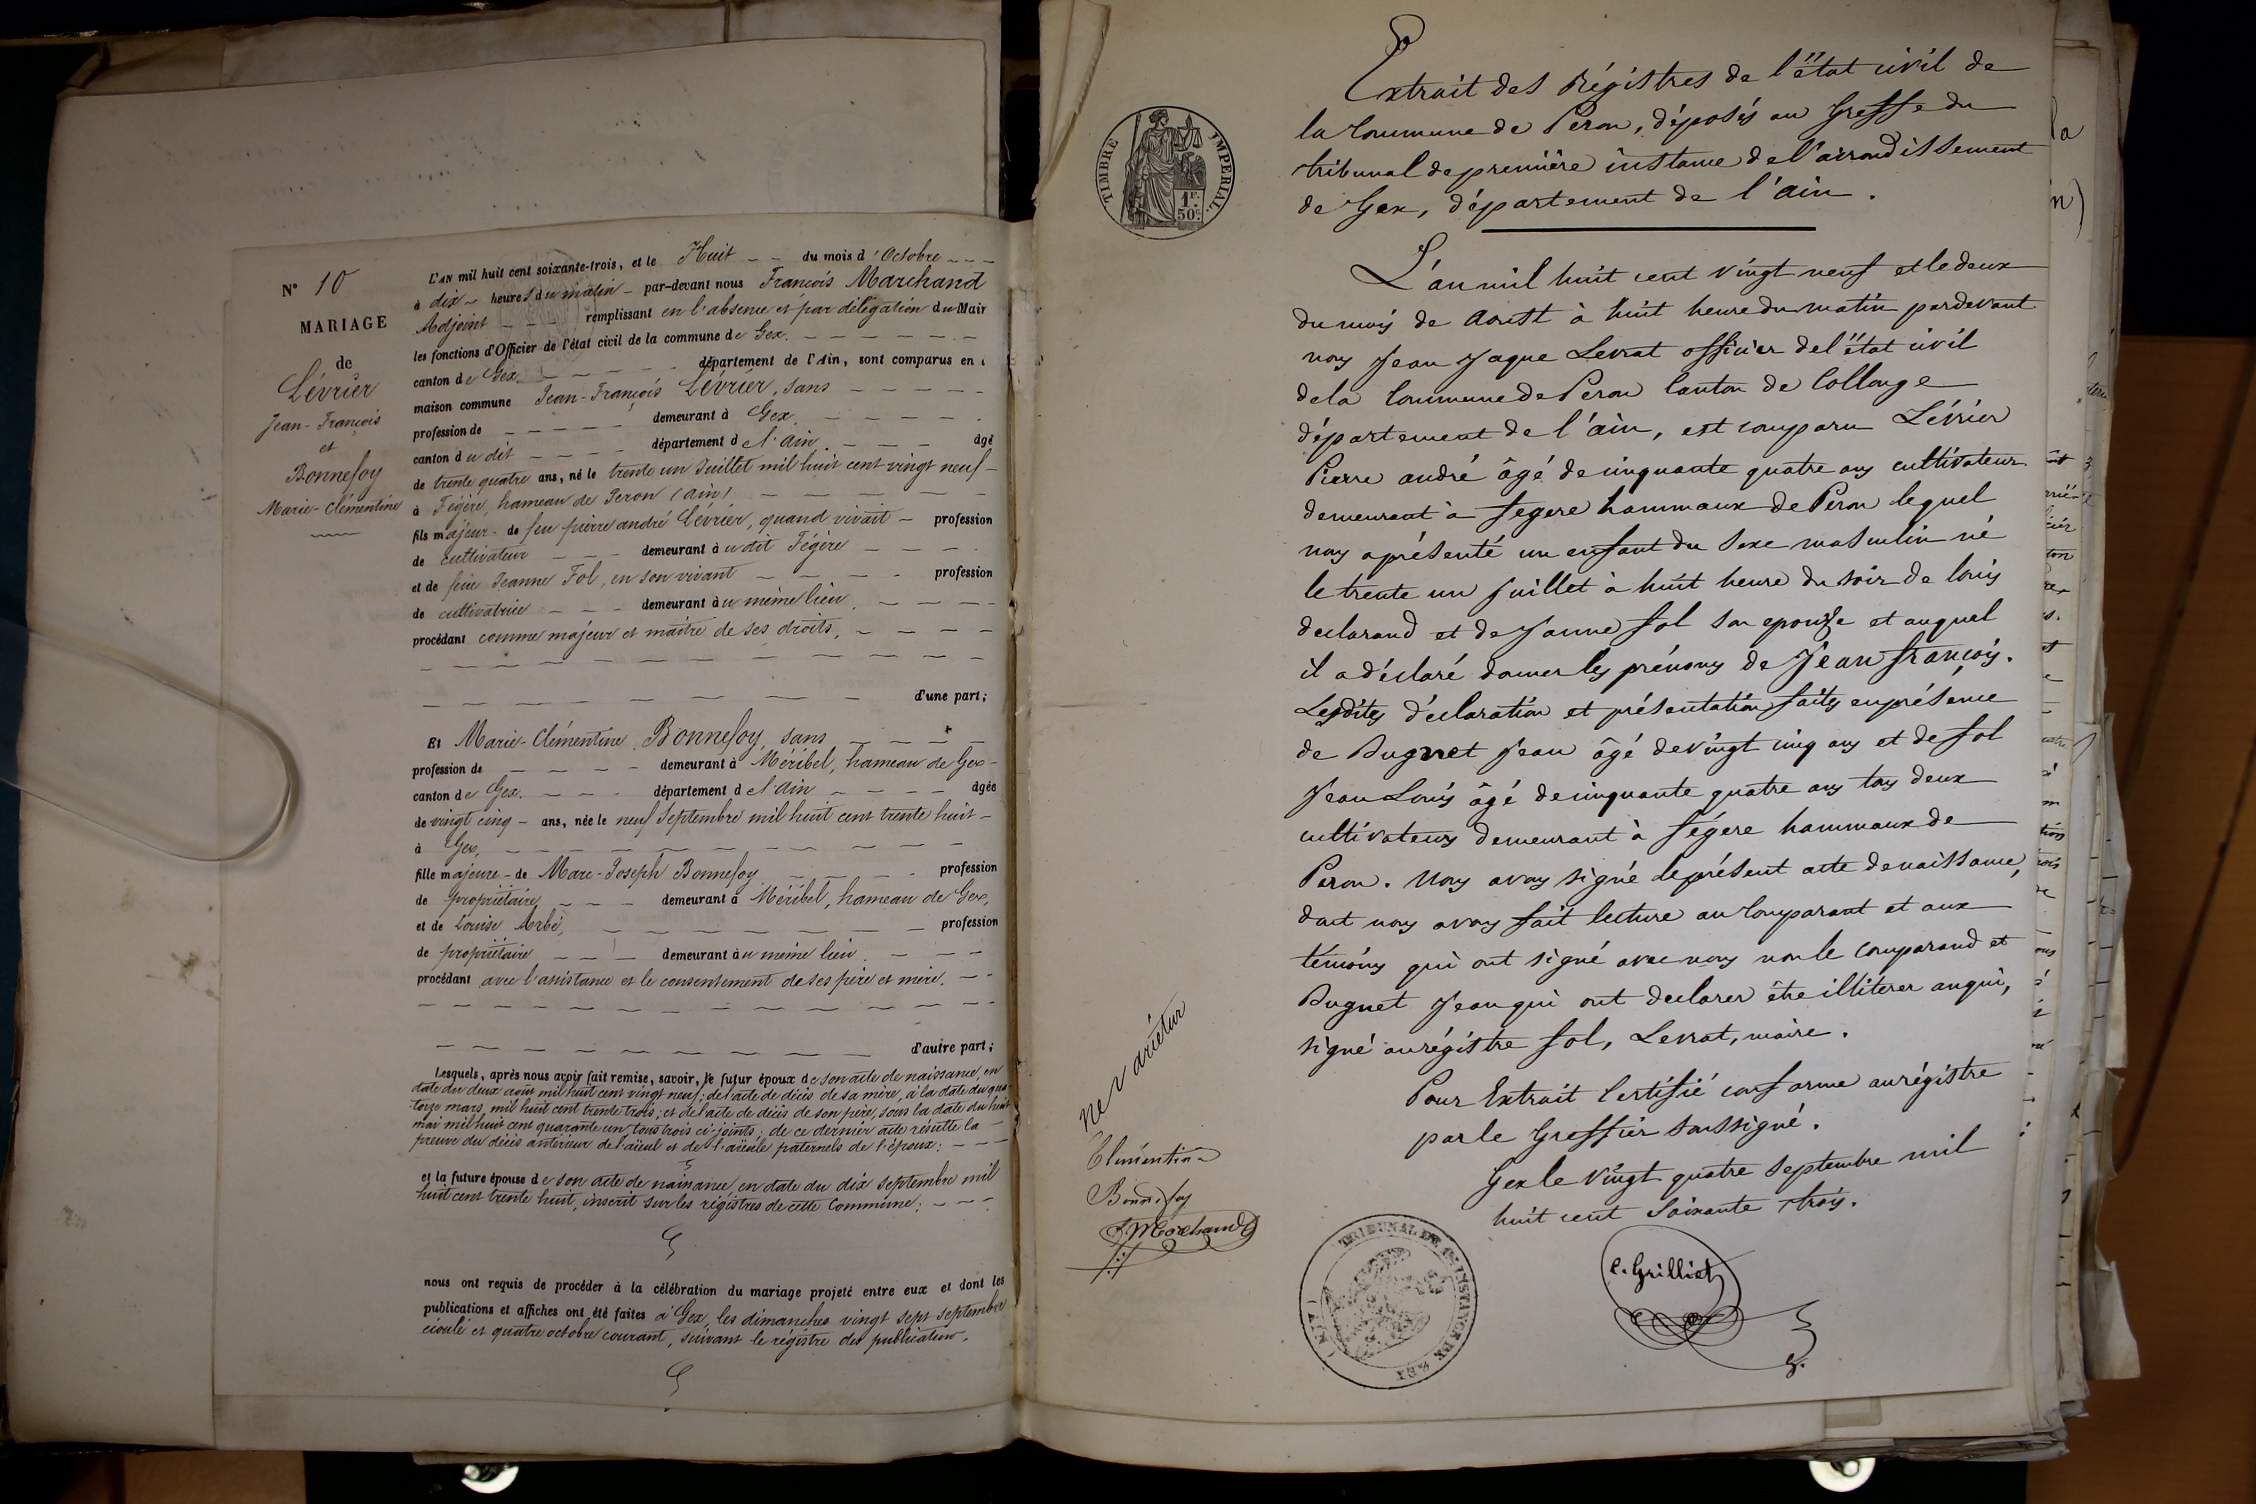 N° 10
MARIAGE
de
Lévrier
Jean-François
et
Bonnefoy
Marie-Clémentine
L'AN mil huit cent soixante-trois, et le Huit du mois d'Octobre
à dix heures du matin par-devant nous François Marchand
Adjoint remplissant en l'absence et par délégation du Mair
les fonctions d'Officier de l'état civil de la commune de Gex.
canton de Gex. département de l'Ain, sont comparus en
maison commune Jean-François Lévrier, sans
profession de demeurant à Gex.
canton du dit département de l'Ain. âgé
de trente quatre ans, né le trente un Juillet mil huit cent vingt neuf
à Fégère, hameau de Peron (Ain)
fils majeur de feu pierre andré Lévrier, quand vivait profession
de cultivateur demeurant à u dit Fégère
et de feue Jeanne Fol, en son vivant profession
de cultivatrice demeurant à u même lieu.
procédant comme majeur et maître de ses droits,
d'une part;
Et Marie-Clémentine Bonnefoy, sans
profession de demeurant à Méribel, hameau de Gex
canton de Gex. département de l'Ain âgée
de vingt cinq ans, née le neuf Septembre mil huit cent trente huit
à Gex,
fille majeure de Marc-Joseph Bonnefoy profession
de propriétaire demeurant à Méribel, hameau de Gex,
et de Louise Arbé, profession
de propriétaire demeurant à u même lieu.
procédant avec l'assistance et le consentement de ses père et mère.
d'autre part;
Lesquels, après nous avoir fait remise, savoir, le futur époux de son acte de naissance, en
date du deux août mil huit cent vingt neuf; de l'acte de décès de sa mère, à la date du qua-
-torze mars, mil huit cent trente trois; et de l'acte de décès de son père, sous la date du huit
mai mil huit cent quarante un, tous trois ci-joints; de ce dernier acte résulte la
preuve du décès antérieur de l'aïeul et de l'aïeule paternels de l'époux;
et la future épouse de son acte de naissance, en date du dix septembre mil
huit cent trente huit, inscrit sur les régistres de cette Commune;
nous ont requis de procéder à la célébration du mariage projeté entre eux et dont les
publications et affiches ont été faites à Gex, les dimanches vingt sept septembre
écoulé et quatre octobre courant, suivant le régistre des publications.
TIMBRE IMPERIAL.
1F.
50C.
Extrait des Régistres de l'état civil de
la Commune de Peron, déposés au Greffe du
tribunal de première instance de l'arrondissement
de Gex, département de l'ain.
L'an mil huit cent vingt neuf et le deux
du mois de Aoust à huit heure du matin pardevant
nous Jean Jaque Levrat officier de l'état civil
de la Commune de Peron Canton de Collonge
département de l'ain, est comparu Lévrier
Pierre andré âgé de cinquante quatre ans cultivateur
demeurant à fegere hammaux de Péron lequel
nous a présenté un enfant du sexe masculin né
le trente un juillet à huit heure du soir de louis
declarand et de Janne fol son epouse et auquel
il a déclaré donner les prénoms de Jean françois.
Lesdites déclaration et présentation faites en présence
de Dugnet Jean âgé de vingt cinq ans et de fol
Jean Louis âgé de cinquante quatre ans tous deux
cultivateurs demeurant à fégere hammaux de
Peron. Nous avons signé le présent acte de naissance,
dont nous avons fait lecture au Comparant et aux
témoins qui ont signé avec nous non le Comparand et
Dugnet Jean qui ont declarer être illiterer au qui,
signé au régistre fol, Levrat, maire.
Pour Extrait Certifié conforme au régistre
par le Greffier soussigné.
Gex le vingt quatre septembre mil
huit cent soixante trois.
C. Grilliet
TRIBUNAL DE 1RE INSTANCE DE GEX (AIN)
ne varietur
Clémentine
Bonnefoy
f. Marchand